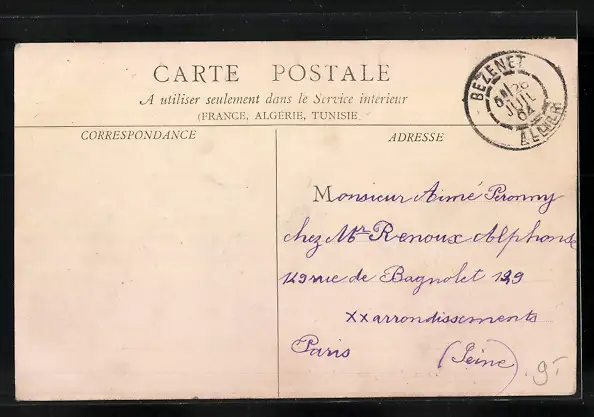 CARTE POSTALE
A utiliser seulement dans le Service intérieur
(FRANCE, ALGÉRIE, TUNISIE
CORRESPONDANCE
ADRESSE
BEZENET
26
JUIL
04
ALLIER
Monsieur Aimé Peronny
chez Mr Renoux Alphonse
129 rue de Bagnolet 129
XX arrondissements
Paris (Seine)